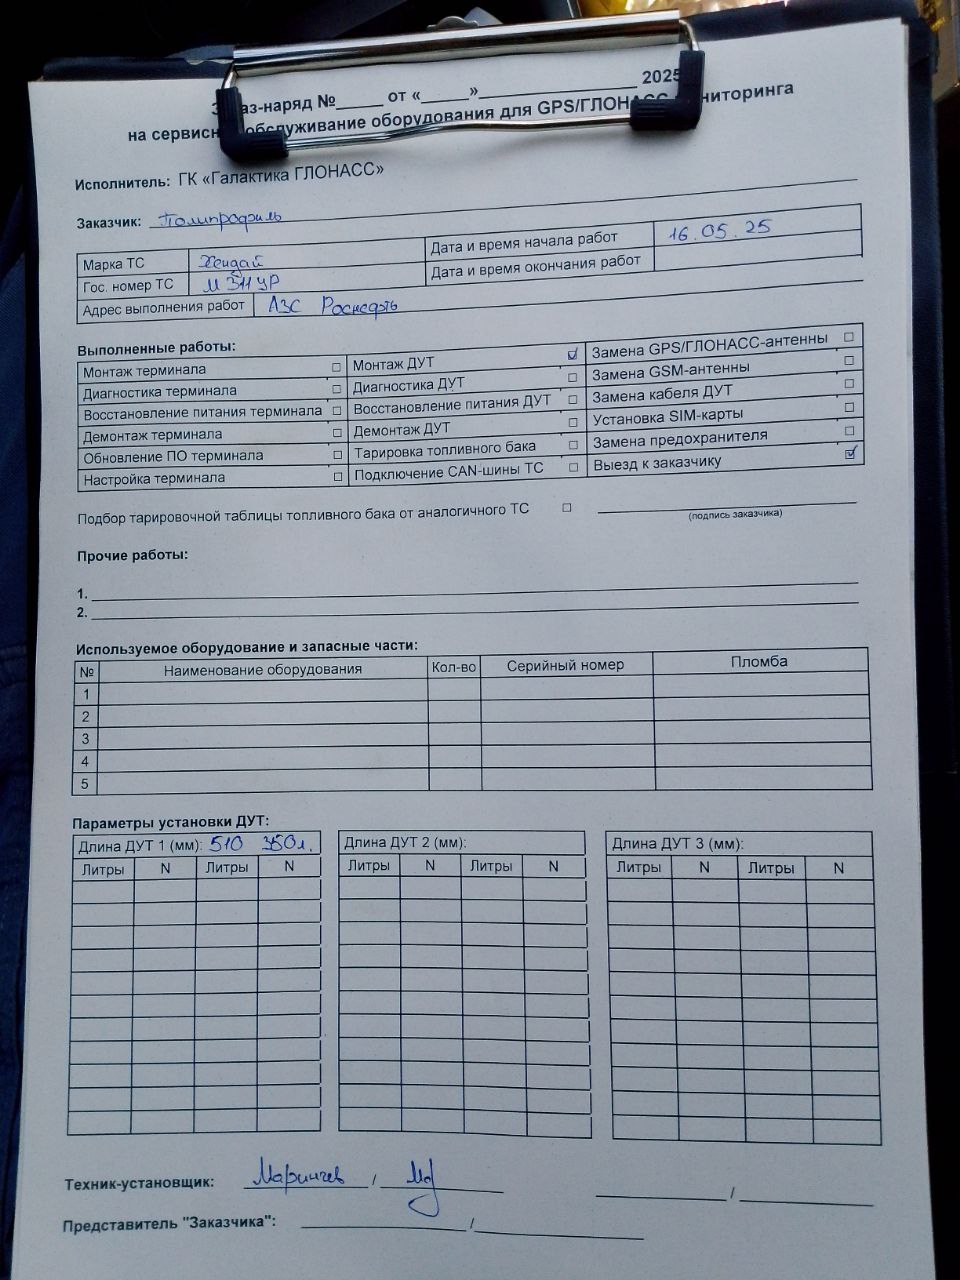 Заказ-наряд №_____ от «_____»________________ 2025
на сервисное обслуживание оборудования для GPS/ГЛОНАСС мониторинга
Исполнитель: ГК «Галактика ГЛОНАСС»
Заказчик: Полипрофиль
Марка ТС Хендай Дата и время начала работ 16.05.25
Гос. номер ТС М 311 УР Дата и время окончания работ
Адрес выполнения работ АЗС Роснефть
Выполненные работы:
Монтаж терминала ☐ Монтаж ДУТ ☑ Замена GPS/ГЛОНАСС-антенны ☐
Диагностика терминала ☐ Диагностика ДУТ ☐ Замена GSM-антенны ☐
Восстановление питания терминала ☐ Восстановление питания ДУТ ☐ Замена кабеля ДУТ ☐
Демонтаж терминала ☐ Демонтаж ДУТ ☐ Установка SIM-карты ☐
Обновление ПО терминала ☐ Тарировка топливного бака ☐ Замена предохранителя ☐
Настройка терминала ☐ Подключение CAN-шины ТС ☐ Выезд к заказчику ☑
Подбор тарировочной таблицы топливного бака от аналогичного ТС ☐
(подпись заказчика)
Прочие работы:
1.
2.
Используемое оборудование и запасные части:
№ Наименование оборудования Кол-во Серийный номер Пломба
1
2
3
4
5
Параметры установки ДУТ:
Длина ДУТ 1 (мм): 510 350л. Длина ДУТ 2 (мм): Длина ДУТ 3 (мм):
Литры N Литры N Литры N Литры N Литры N Литры N
Техник-установщик: Маринчев /
Представитель "Заказчика": /